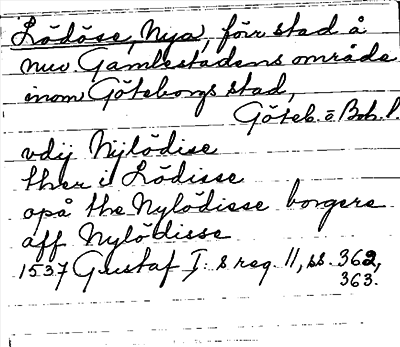 Lödöse, Nya, förr stad å
nuv. Gamlestadens område
inom Göteborgs stad,
Göteb. o. Boh. l.
vdij Nijlödise
ther i Lödisse
opå the Nylödisse borgere
aff Nylödisse
1537 Gustaf I:s reg. 11, ss. 362,
363.